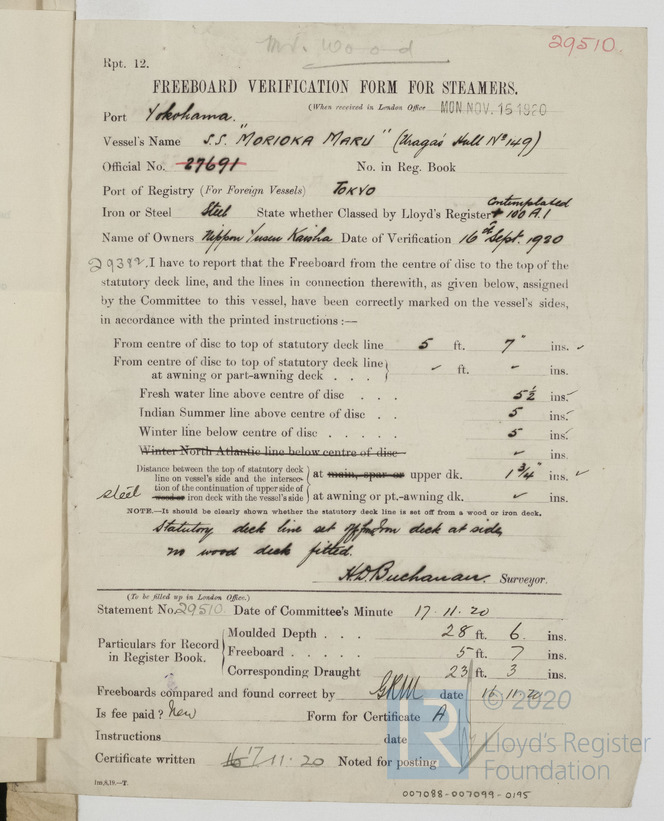 Mr. Wood
29510.
Rpt. 12.
FREEBOARD VERIFICATION FORM FOR STEAMERS.
(When received in London Office MON. NOV. 15 1920
Port Yokohama.
Vessel's Name S.S. "MORIOKA MARU" (Uraga's Hull No 149)
Official No. 27691 No. in Reg. Book
Port of Registry (For Foreign Vessels) TOKYO
Contemplated
Iron or Steel Steel State whether Classed by Lloyd's Register + 100 A.1
Name of Owners Nippon Yusen Kaisha Date of Verification 16th Sept. 1920
29382. I have to report that the Freeboard from the centre of disc to the top of the
statutory deck line, and the lines in connection therewith, as given below, assigned
by the Committee to this vessel, have been correctly marked on the vessel's sides,
in accordance with the printed instructions :—
From centre of disc to top of statutory deck line 5 ft. 7" ins. ✓
From centre of disc to top of statutory deck line
at awning or part-awning deck . . . ✓ ft. ✓ ins.
Fresh water line above centre of disc . . . 5½ ins. ✓
Indian Summer line above centre of disc . . 5 ins. ✓
Winter line below centre of disc . . . . . 5 ins. ✓
Winter North Atlantic line below centre of disc ✓ ins.
Distance between the top of statutory deck
line on vessel's side and the intersec-
tion of the continuation of upper side of
steel wood or iron deck with the vessel's side
at main, spar or upper dk. 1¾" ins. ✓
at awning or pt.-awning dk. ✓ ins.
NOTE.—It should be clearly shown whether the statutory deck line is set off from a wood or iron deck.
Statutory deck line set off from iron deck at side,
no wood deck fitted.
H.D. Buchanan. Surveyor.
(To be filled up in London Office.)
Statement No. 29510. Date of Committee's Minute 17.11.20
Particulars for Record
in Register Book.
Moulded Depth . . . 28 ft. 6 ins.
Freeboard . . . . . 5 ft. 7 ins.
Corresponding Draught 23 ft. 3 ins.
Freeboards compared and found correct by GRM date 16.11.20
Is fee paid? New Form for Certificate A
Instructions date
Certificate written 17.11.20 Noted for posting
1m,8,19.—T.
007088-007099-0195
R
© 2020
Lloyd's Register
Foundation